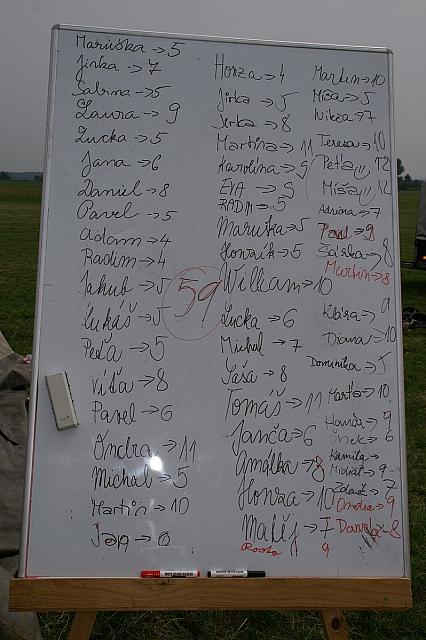 Maruška → 5
Jirka → 7
Sabina → 5
Laura → 9
Lucka → 5
Jana → 6
Daniel → 8
Pavel → 5
Adam → 4
Radim → 4
Jakub → 5
Lukáš → 5
Peťa → 5
Víťa → 8
Pavel → 6
Ondra → 11
Michal → 5
Martin → 10
59
Honza → 4
Jirka → 5
Jirka → 8
Martina → 11
Karolína → 5
EVA → 5
RADIM → 5
Maruška → 5
Honzík → 5
William → 10
Lucka → 6
Michal → 7
Saša → 8
Tomáš → 11
Janča → 6
Amálka → 8
Honza → 10
Matěj → 7
9
Martin → 10
Míša → 5
→ 7
Tereza → 10
Peťa 12
Míša 12
Adriana → 7
Pavel → 9
Šárka → 8
Martin → 8
Klára → 9
Diana → 10
Dominika → 5
Marta → 10
Honza → 9
→ 6
Kamila →
Michal → 9
→ 7
Ondra → 9
Daniela → 8